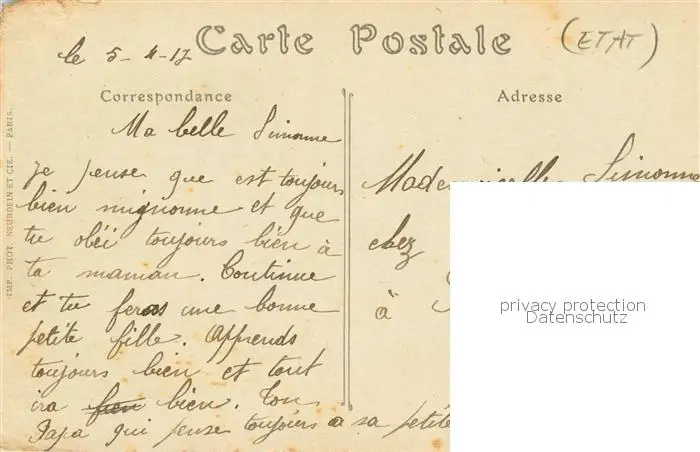 le 5-4-17
Carte Postale
(ETAT)
Correspondance
Adresse
Ma belle Simonne
je pense que est toujours
bien mignonne et que
tu obéi toujours bien à
ta maman. Continue
et tu feras une bonne
petite fille. Apprends
toujours bien et tout
ira bien bien. Ton
Papa qui pense toujours a sa petite
Mademoiselle Simonne
chez
à
IMP. PHOT. NEURDEIN ET CIE. — PARIS.
privacy protection
Datenschutz